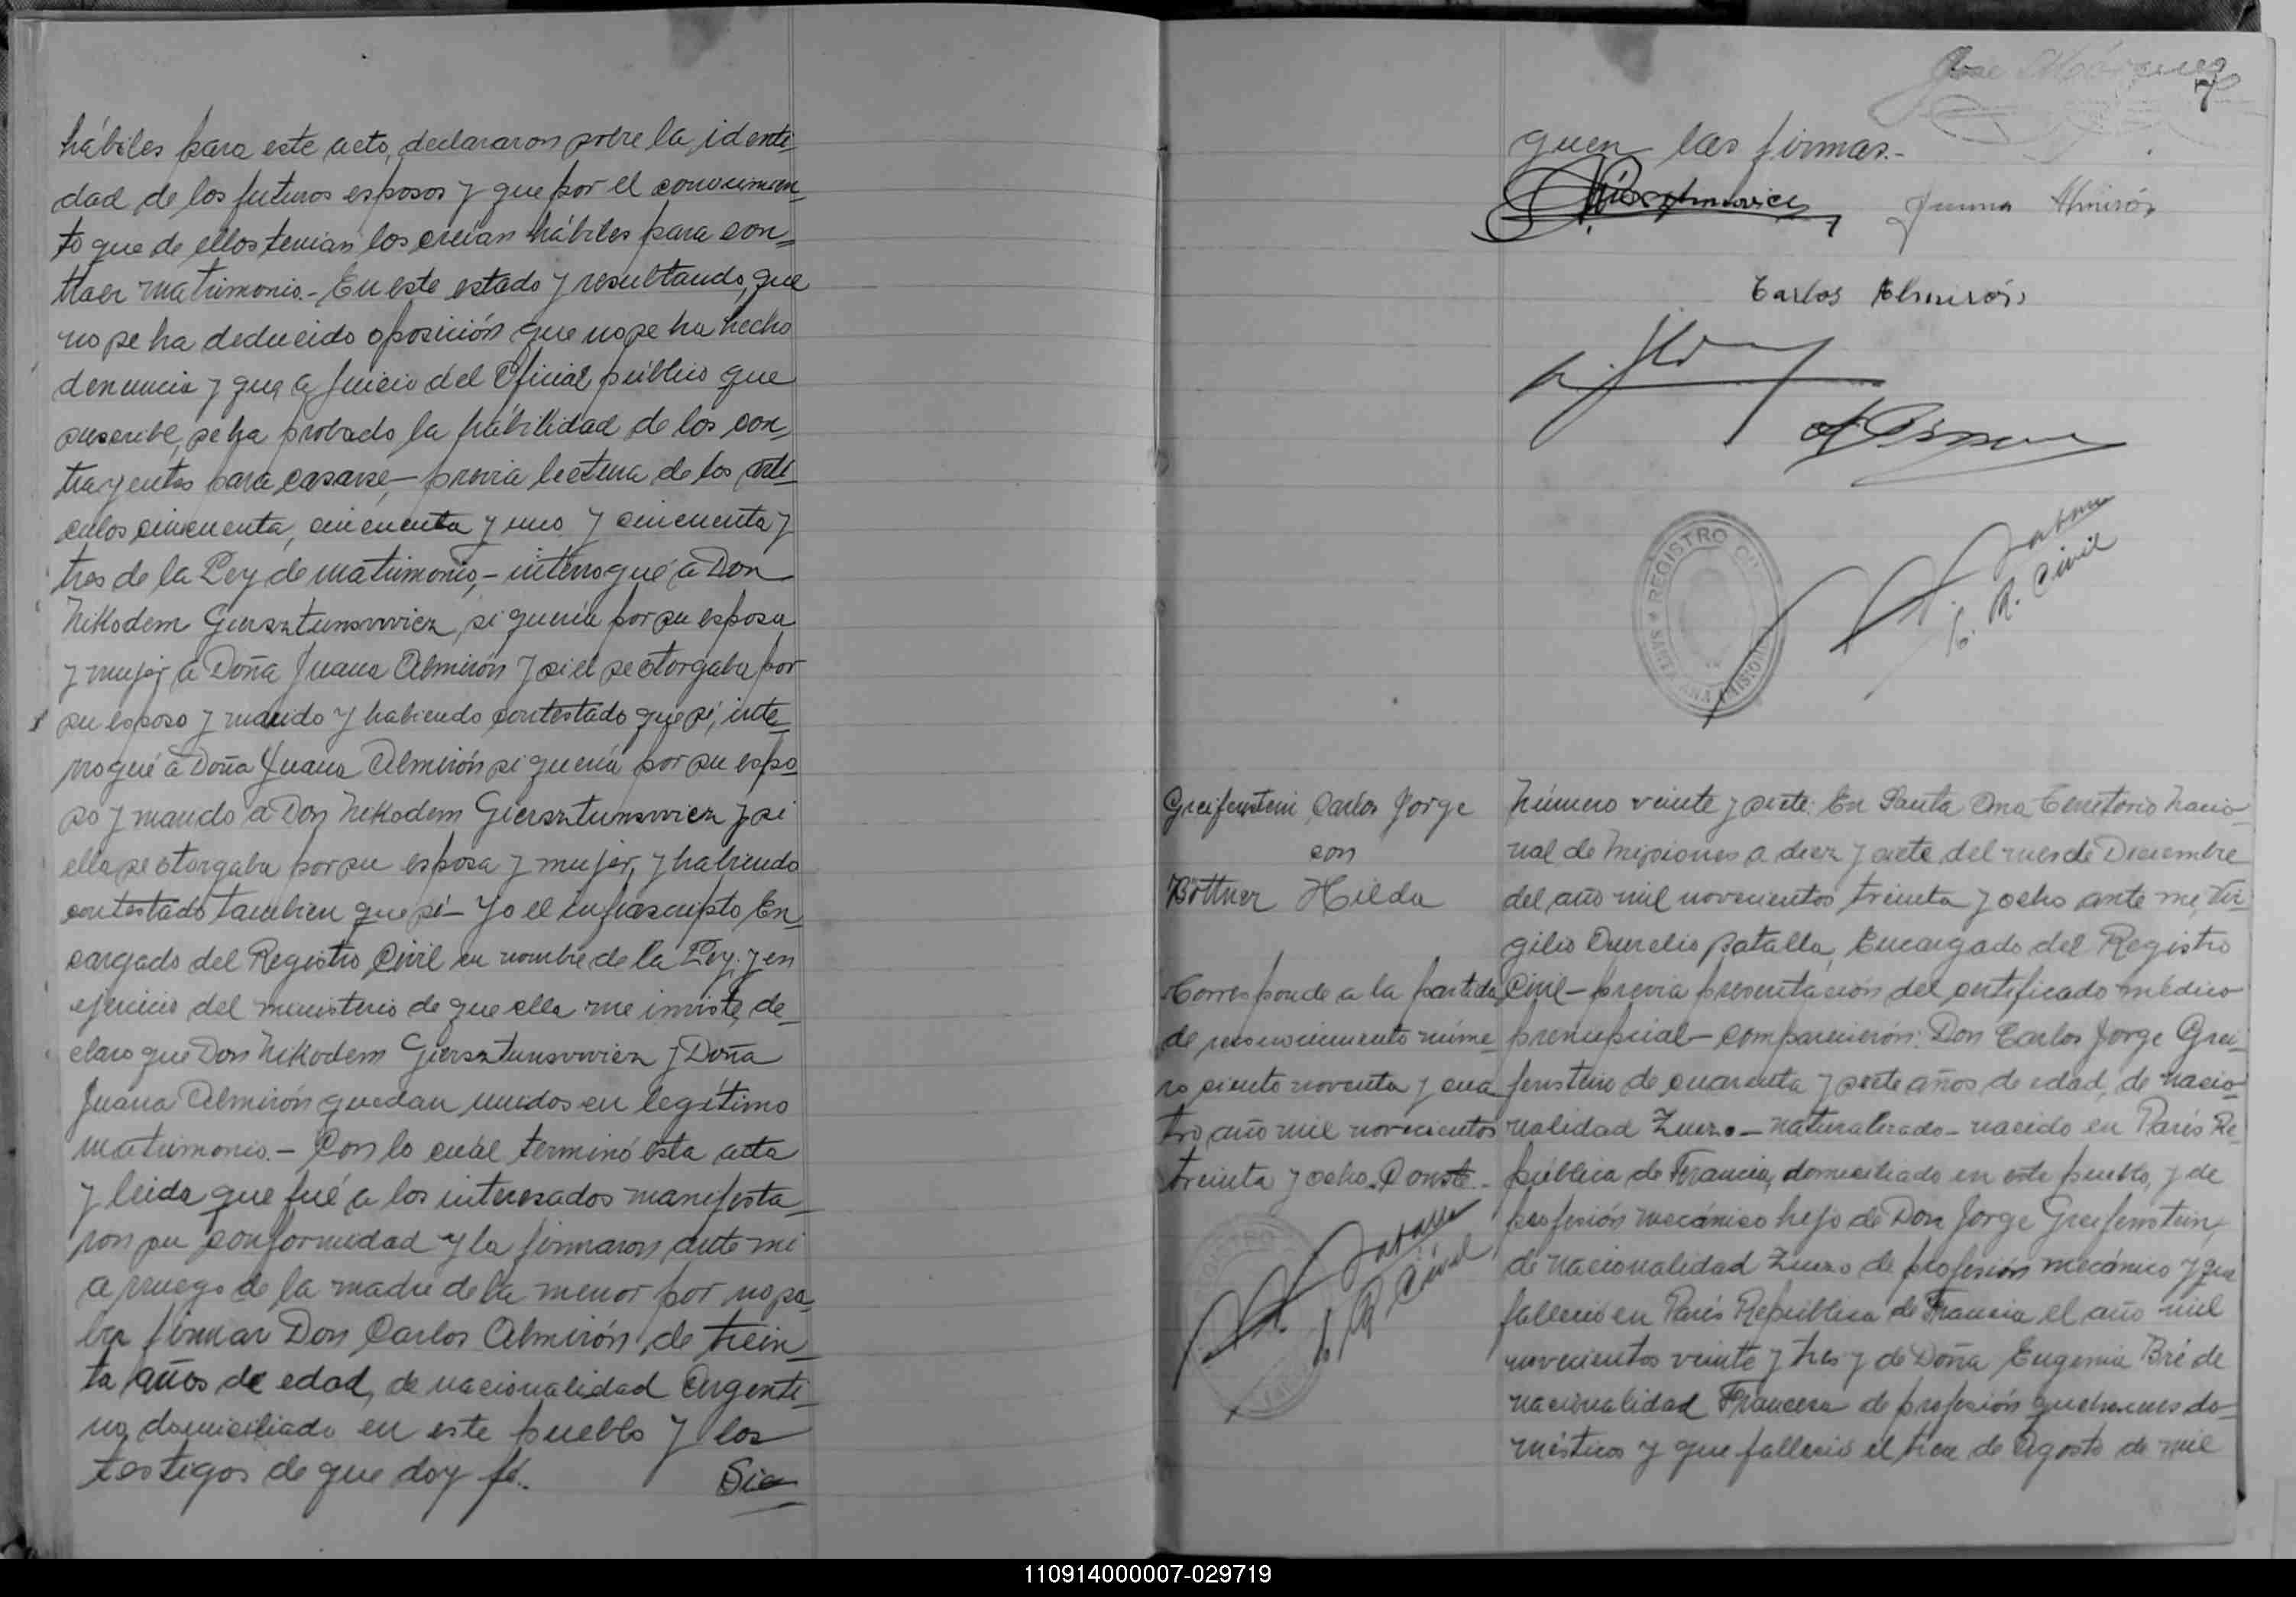 hábiles para este acto, declararon sobre la identi-
dad de los futuros esposos y que por el conocimien-
to que de ellos tenian los creían hábiles para con-
traer matrimonio.- En este estado y resultando, que
no se ha deducido oposición que no se ha hecho
denuncia y que, a juicio del Oficial público que
suscribe, se ha probado la habilidad de los con-
trayentes para casarse,- previa lectura de los artí-
culos cincuenta, cincuenta y uno y cincuenta y
tres de la Ley de matrimonio,- interrogué a Don
Nikodem Giersztunowicz, si quería por su esposa
y mujer a Doña Juana Almirón y si el se otorgaba por
su esposo y marido y habiendo contestado que sí, inte-
rrogué a Doña Juana Almirón si quería por su espo-
so y marido a Don Nikodem Giersztunowicz y si
ella se otorgaba por su esposa y mujer, y habiendo
contestado tambien que sí- Yo el infrascripto En-
cargado del Registro Civil en nombre de la Ley y en
ejercicio del ministerio de que ella me inviste, de-
claro que Don Nikodem Giersztunowicz y Doña
Juana Almirón quedan unidos en legítimo
matrimonio.- Con lo cuál terminó esta acta
y leida que fué a los interesados manifesta-
ron su conformidad y la firmaron ante mi
a ruego de la madre de la menor por no sa-
ber firmar Don Carlos Almirón, de trein-
ta años de edad, de nacionalidad Argenti-
no, domiciliado en este pueblo y los
testigos de que doy fé.- Sie-
José Márquez
7
guen las firmas.-
Juana Almirón
Carlos Almirón
REGISTRO CIVIL
SANTA ANA (MISIONES)
E. R. Civil
Greifenstein Carlos Jorge
con
Böttner Hilda
Corresponde a la partida
de reconocimiento núme-
ro ciento noventa y cua-
tro, año mil novecientos
treinta y ocho. Conste.-
E. R. Civil
Número veinte y siete: En Santa Ana Territorio Nacio-
nal de Misiones a diez y siete del mes de Diciembre
del año mil novecientos treinta y ocho ante mi, Vir-
gilio Aurelio Satalla, Encargado del Registro
Civil- previa presentación del certificado médico
prenupcial- comparecieron: Don Carlos Jorge Grei-
fenstein de cuarenta y siete años de edad, de nacio-
nalidad Zuizo- naturalizado- nacido en París Re-
pública de Francia, domiciliado en este pueblo, y de
profesión mecánico hijo de Don Jorge Greifenstein,
de nacionalidad Zuizo de profesión mecánico y que
falleció en París República de Francia el año mil
novecientos veinte y tres y de Doña Eugenia Bré de
nacionalidad Francesa de profesión quehaceres do-
mésticos y que falleció el trece de Agosto de mil
110914000007-029719